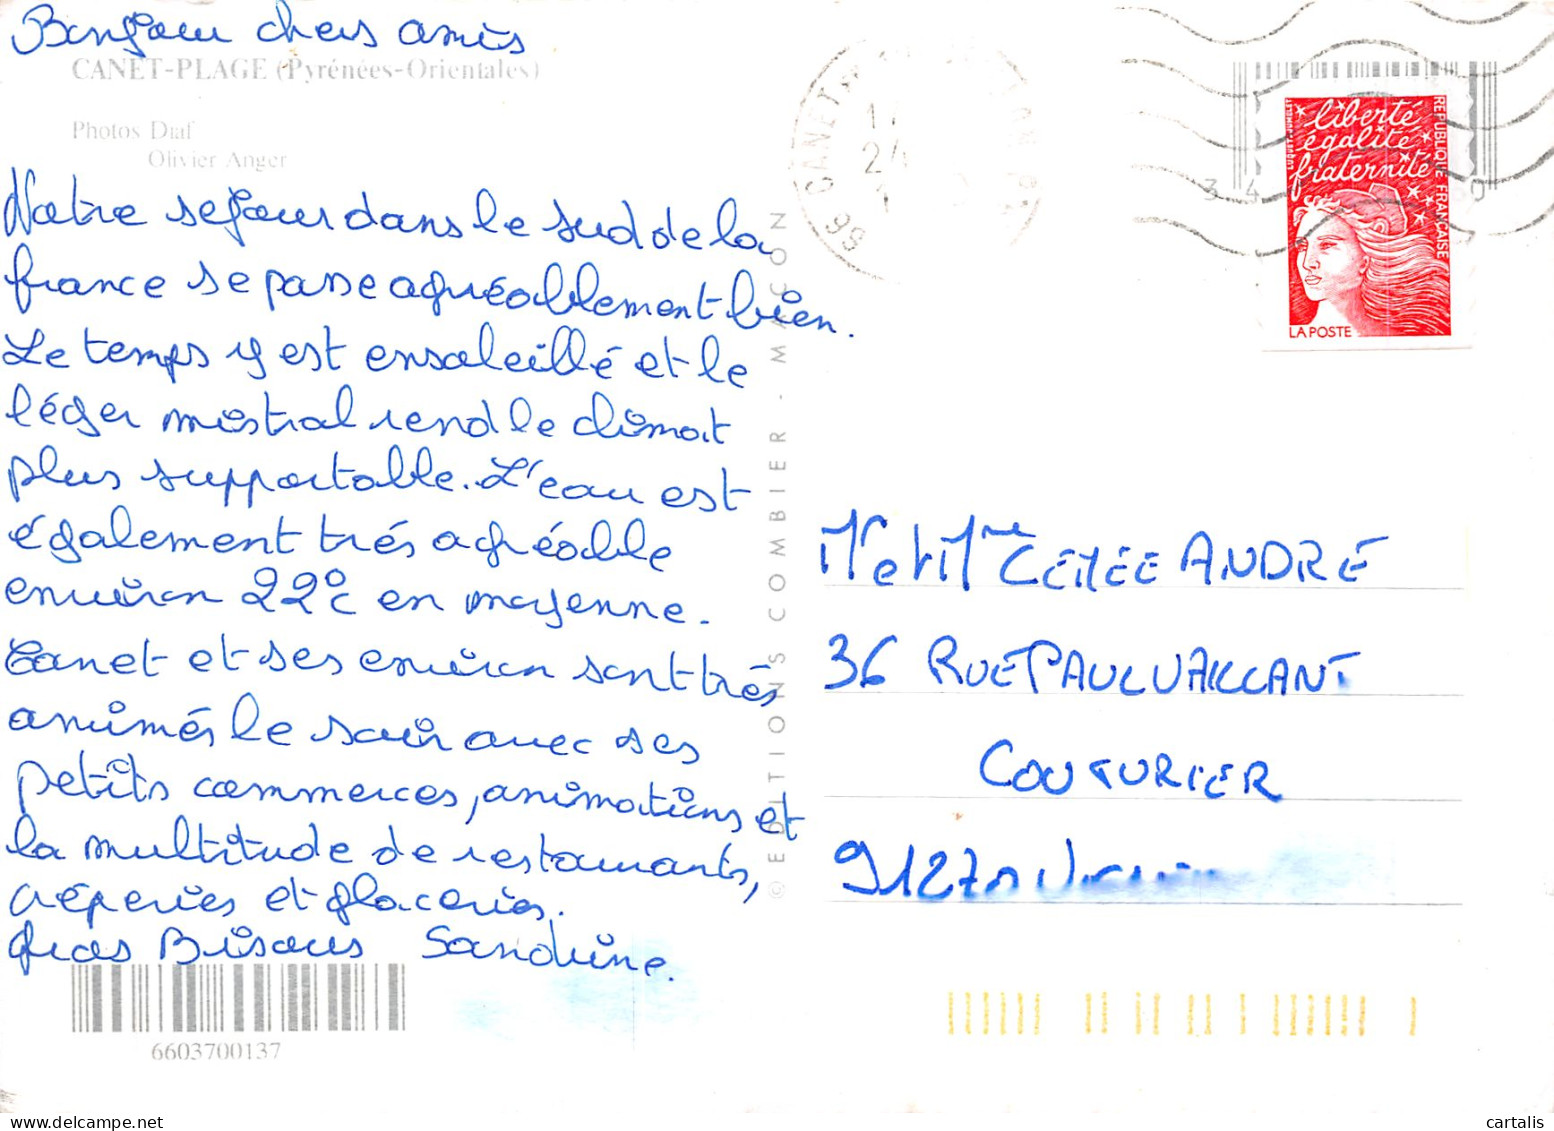 Bonjour chers amis
CANET-PLAGE (Pyrénées-Orientales)
Photos Diaf
Olivier Anger
Notre séjour dans le sud de la
france se passe agréablement bien.
Le temps y est ensoleillé et le
léger mistral rend le climat
plus supportable. L'eau est
également trés agréable
environ 22°c en moyenne.
Canet et ses environ sont trés
animés le soir avec ses
petits commerces, animations et
la multitude de restaurants,
crêperies et glaceries.
Gros Bisous Sandrine.
6603700137
© EDITIONS COMBIER - MACON
CANET
24
99
34
liberté
égalité
fraternité
REPUBLIQUE FRANÇAISE
LA POSTE
Mr et Mme CEMEE ANDRÉ
36 RUE PAUL VAILLANT
COUTURIER
91270
cartalis